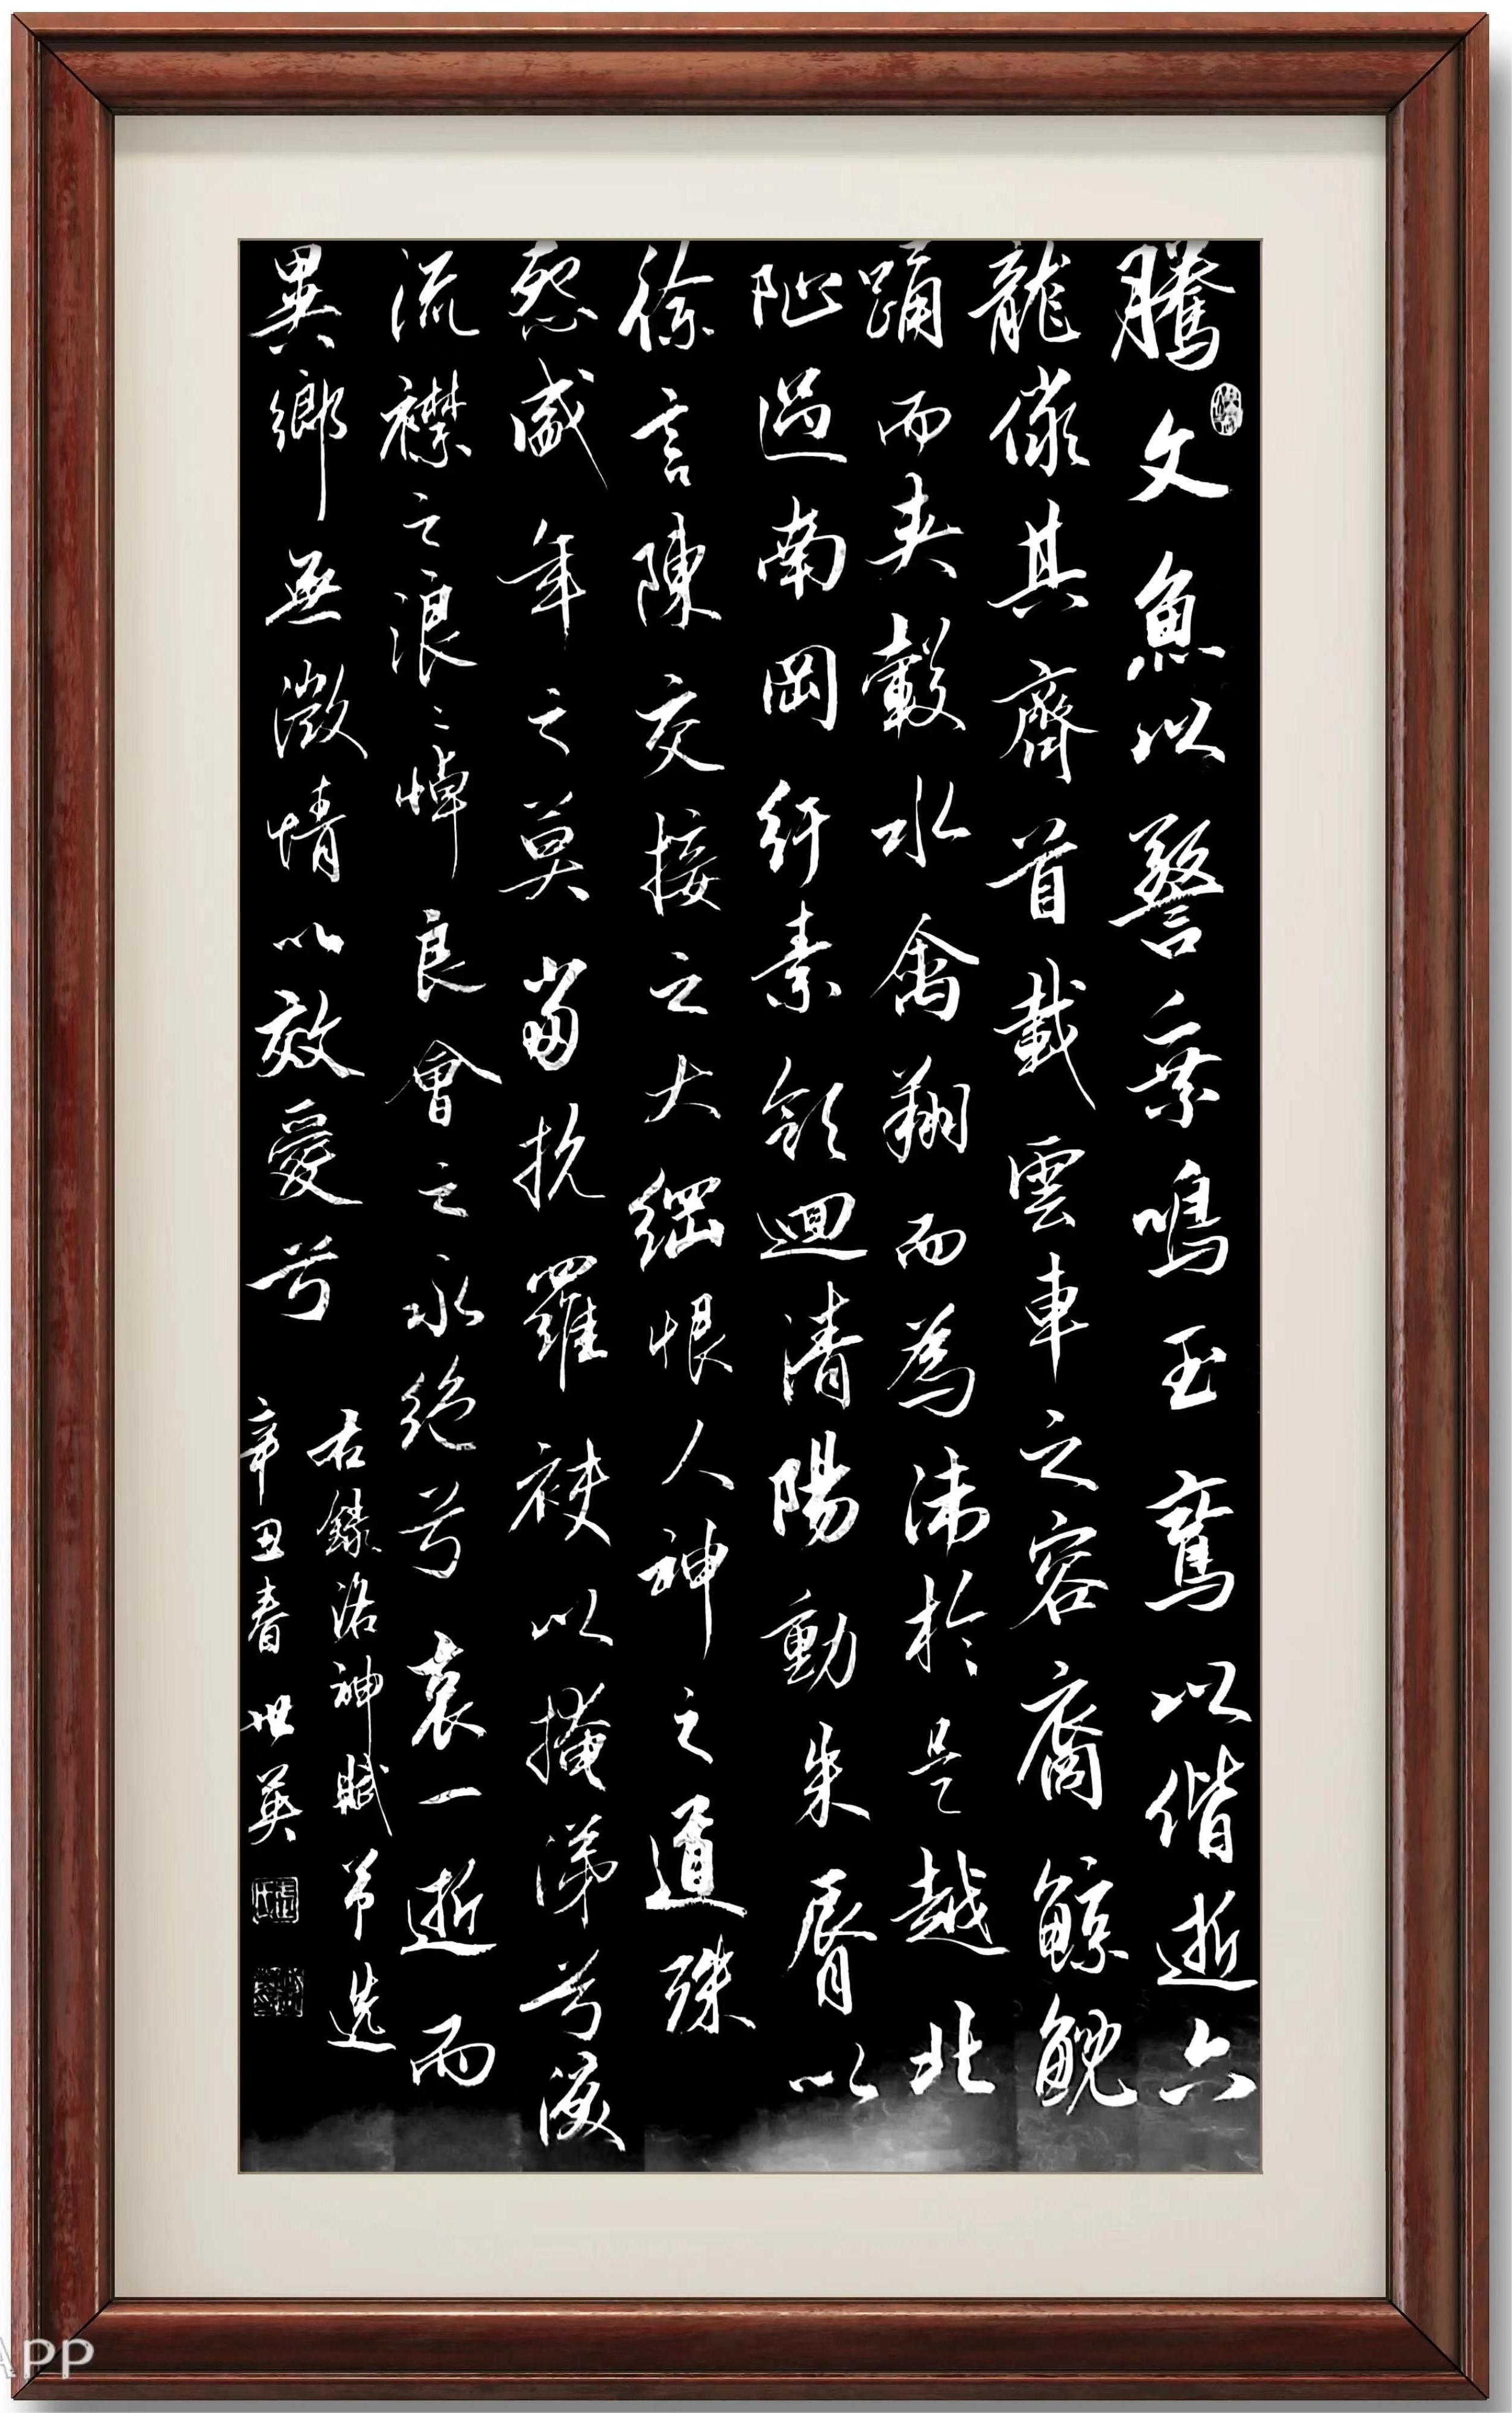 騰文魚以警乗鳴玉鸞以偕逝六
龍儼其齊首載雲車之容裔鯨鯢
踊而夾轂水禽翔而為沛於是越北
沚過南岡紆素領迴清陽動朱脣以
徐言陳交接之大綱恨人神之道殊
怨盛年之莫當抗羅袂以掩涕兮淚
流襟之浪〻悼良會之永絶兮哀一逝而
異鄉無微情以效愛兮
右録洛神賦節選
辛丑春世英
APP